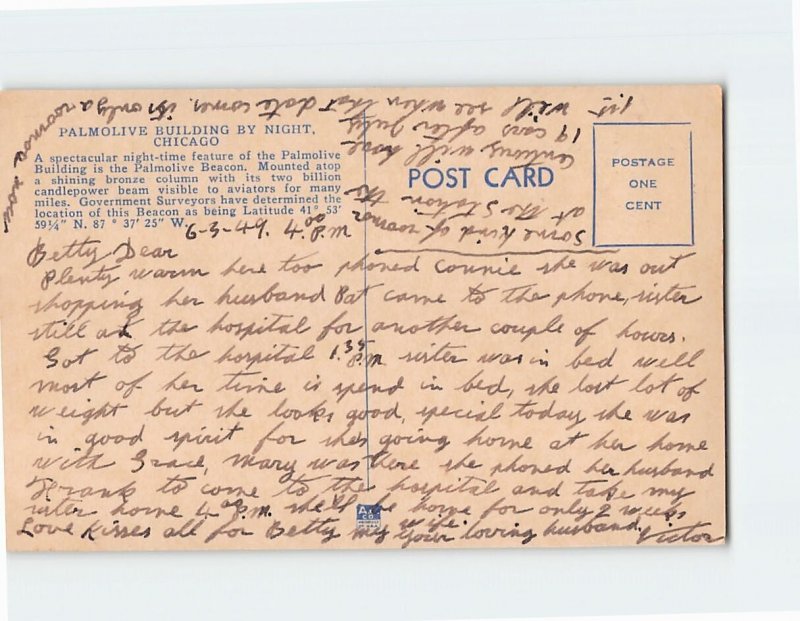 PALMOLIVE BUILDING BY NIGHT,
CHICAGO
A spectacular night-time feature of the Palmolive
Building is the Palmolive Beacon. Mounted atop
a shining bronze column with its two billion
candlepower beam visible to aviators for many
miles. Government Surveyors have determined the
location of this Beacon as being Latitude 41° 53'
59¼" N. 87° 37' 25" W.
POST CARD
POSTAGE
ONE
CENT
6-3-49. 4.00 P.M
Betty Dear
Plenty warm here too phoned Connie she was out
shopping her husband Pat came to the phone, sister
still at the hospital for another couple of hours.
Got to the hospital 1.35 P.M sister was in bed well
most of her time is spend in bed, she lost lot of
weight but she looks good, special today she was
in good spirit for she's going home at her home
with Grace, Mary was there she phoned her husband
Frank to come to the hospital and take my
sister home 4.00 P.M. she'll be home for only 2 weeks
Love Kisses all for Betty my wife. your loving husband, Victor
some kind of rumor
at the Station the
Century will have
19 cars after July
1st will see when that date comes. it's only a rumor
now